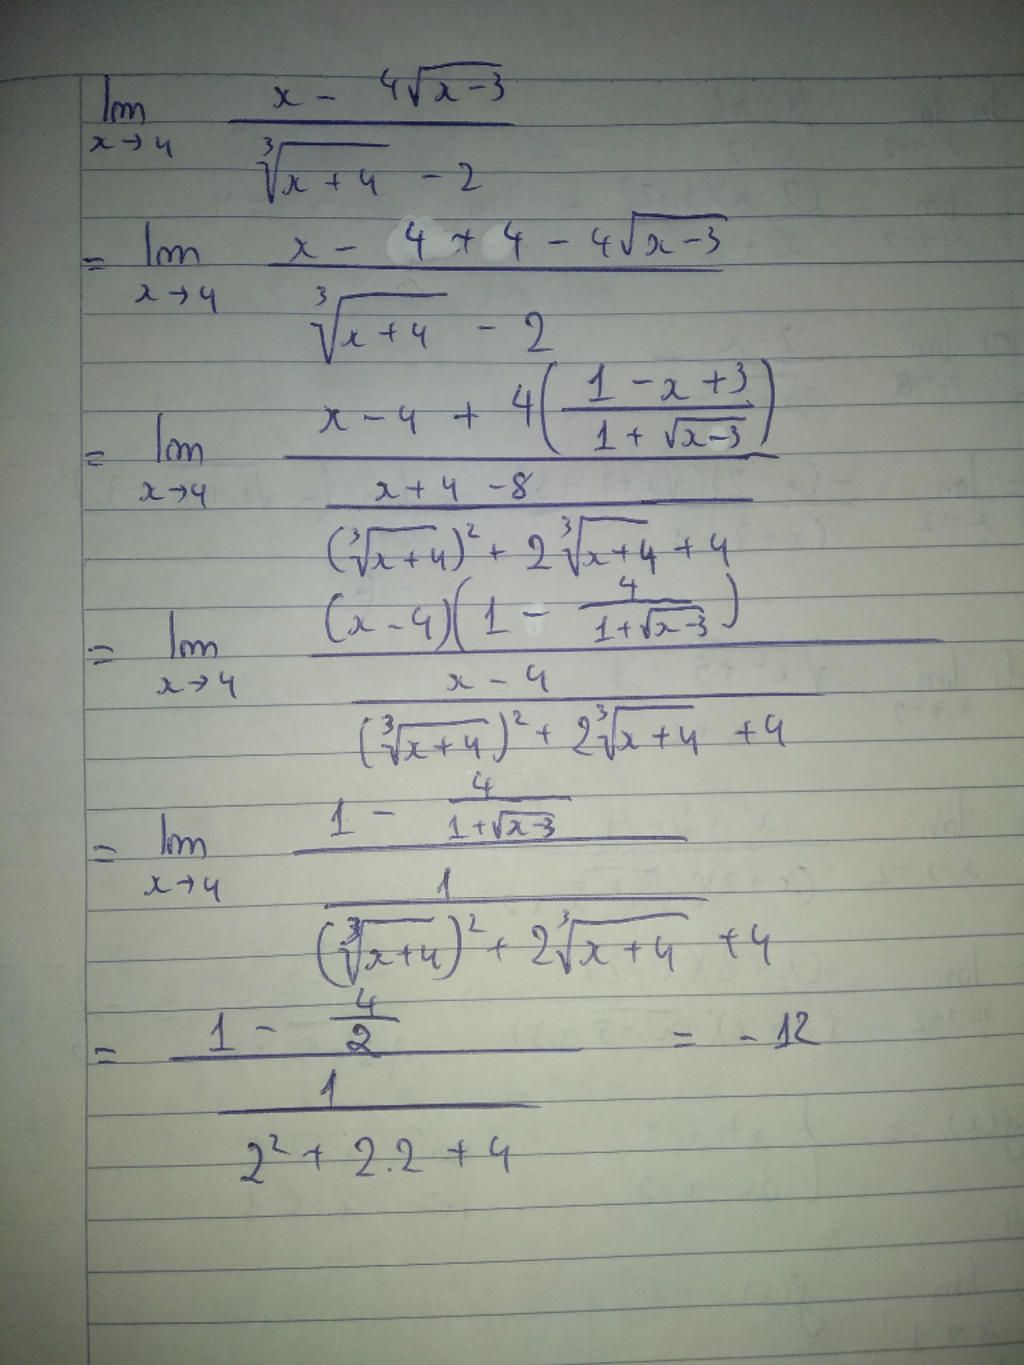 lim x→4 (x - 4√(x-3)) / (∛(x+4) - 2)
= lim x→4 (x - 4 + 4 - 4√(x-3)) / (∛(x+4) - 2)
= lim x→4 (x - 4 + 4((1 - x + 3) / (1 + √(x-3)))) / ((x + 4 - 8) / ((∛(x+4))² + 2∛(x+4) + 4))
= lim x→4 ((x - 4)(1 - 4 / (1 + √(x-3)))) / ((x - 4) / ((∛(x+4))² + 2∛(x+4) + 4))
= lim x→4 (1 - 4 / (1 + √(x-3))) / (1 / ((∛(x+4))² + 2∛(x+4) + 4))
= (1 - 4/2) / (1 / (2² + 2.2 + 4)) = -12